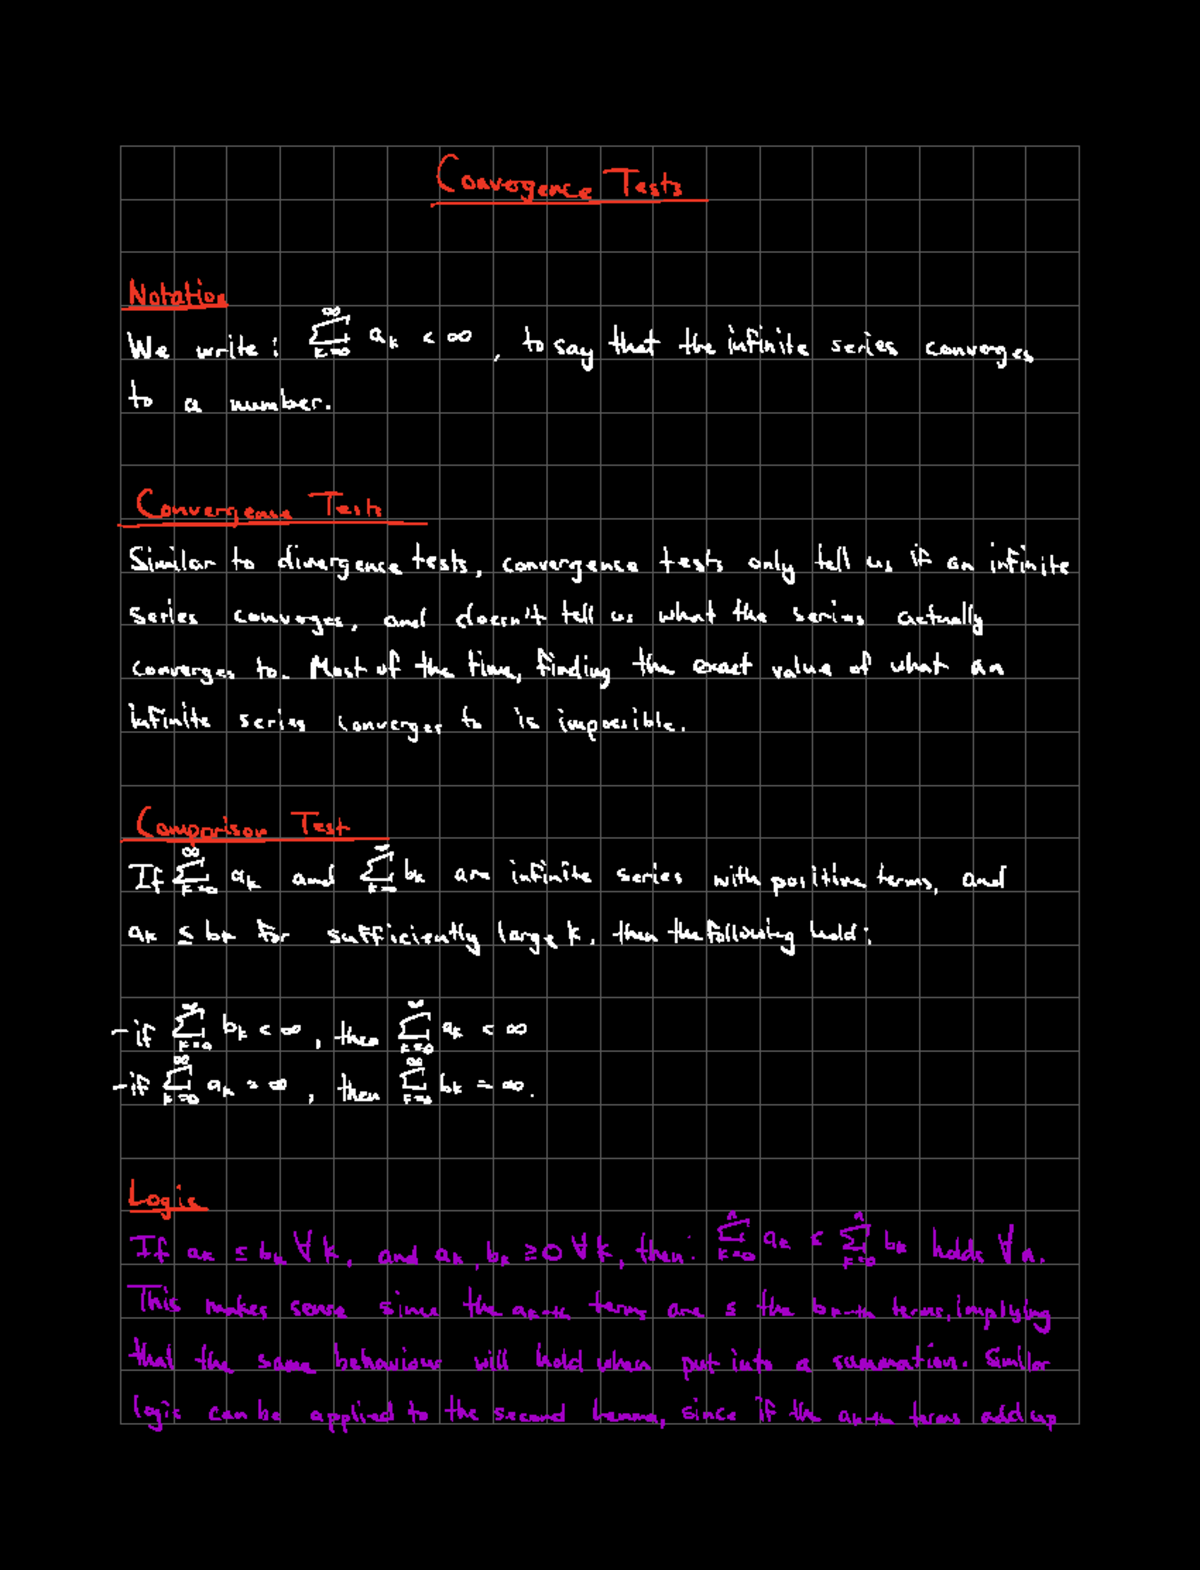 Convergence Tests
Notation
We write: ∑_{k=0}^{∞} a_k < ∞, to say that the infinite series converges
to a number.
Convergence Tests
Similar to divergence tests, convergence tests only tell us if an infinite
series converges, and doesn't tell us what the series actually
converges to. Most of the time, finding the exact value of what an
infinite series converges to is impossible.
Comparison Test
If ∑_{k=0}^{∞} a_k and ∑_{k=0}^{∞} b_k are infinite series with positive terms, and
a_k ≤ b_k for sufficiently large k, then the following hold:
- if ∑_{k=0}^{∞} b_k < ∞, then ∑_{k=0}^{∞} a_k < ∞
- if ∑_{k=0}^{∞} a_k = ∞, then ∑_{k=0}^{∞} b_k = ∞.
Logic
If a_k ≤ b_k ∀k, and a_k, b_k ≥ 0 ∀k, then: ∑_{k=0}^{n} a_k ≤ ∑_{k=0}^{n} b_k holds ∀n.
This makes sense since the a_k-th terms are ≤ the b_k-th terms, implying
that the same behaviour will hold when put into a summation. Similar
logic can be applied to the second lemma, since if the a_k-th terms add up